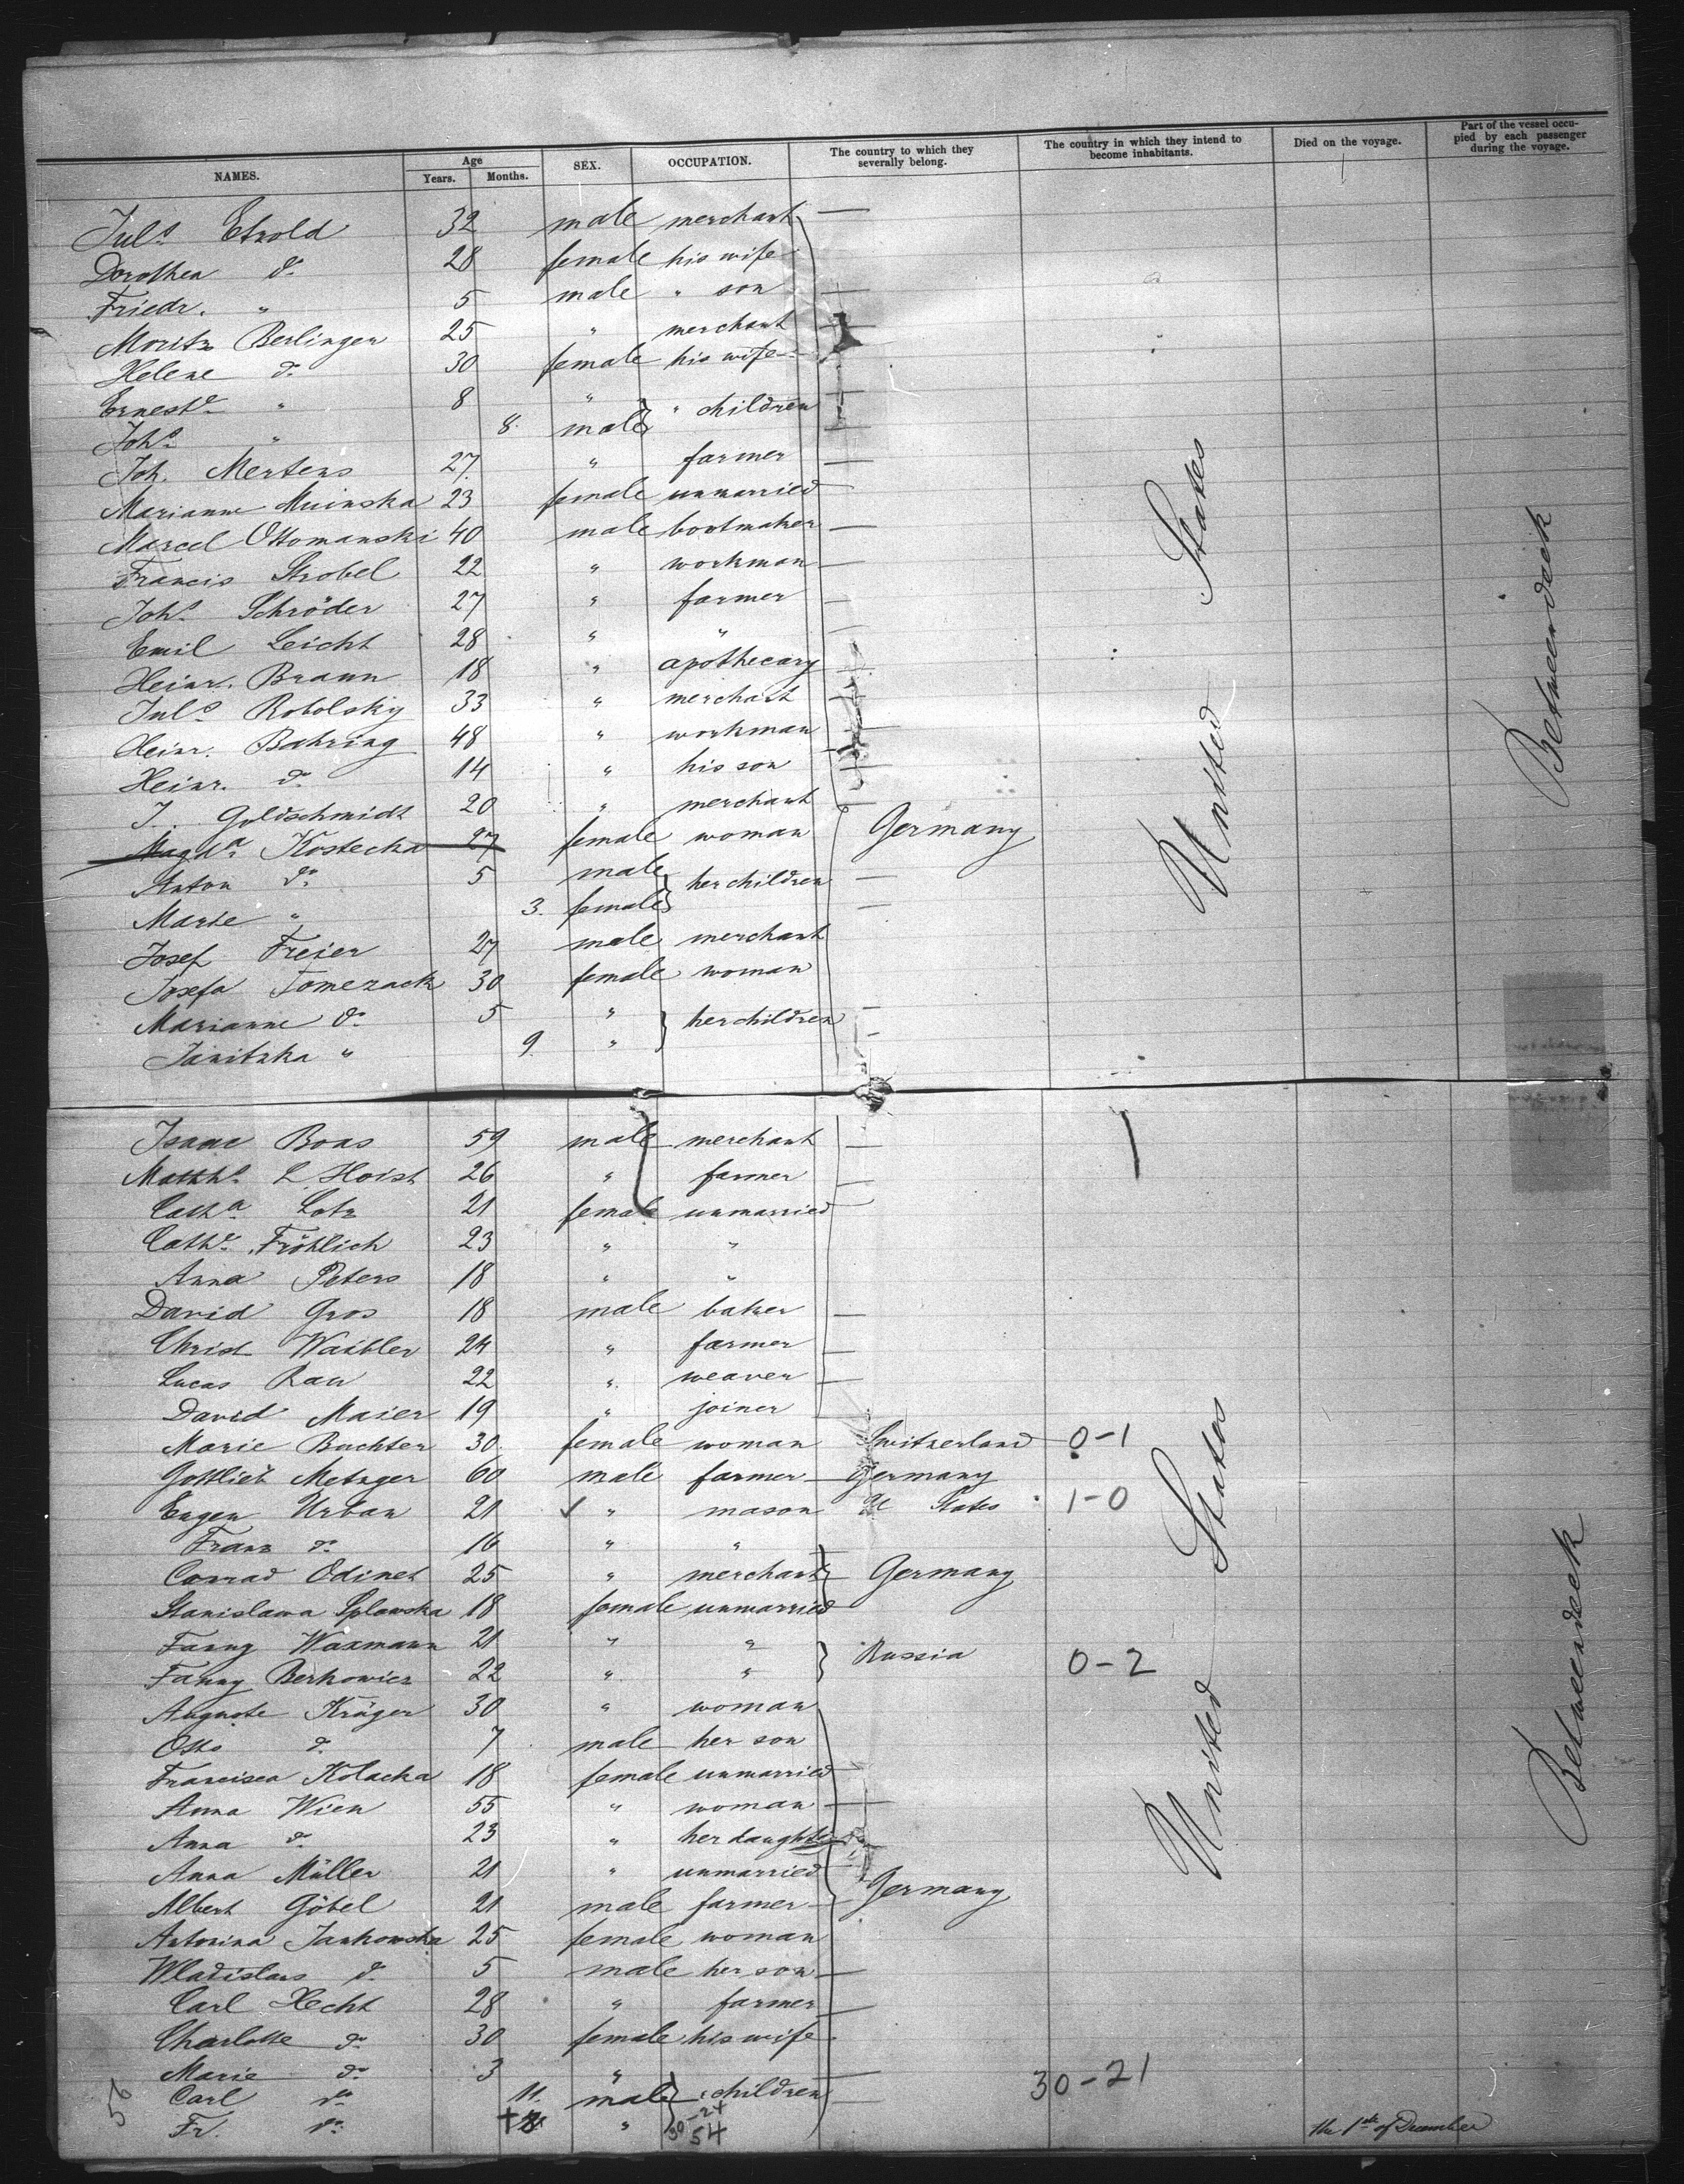 NAMES. Age Years. Months. SEX. OCCUPATION. The country to which they severally belong. The country in which they intend to become inhabitants. Died on the voyage. Part of the vessel occupied by each passenger during the voyage.
Juls Etzold 32 male merchant
Dorothea do 28 female his wife
Friedr. " 5 male " son
Moritz Berlinger 25 " merchant
Helene do 30 female his wife
Ernest " 8 " " children
Johs " 8. male
Joh. Mertens 27 " farmer
Marianne 23 female unmarried
Marcel Ottomanski 40 male bootmaker
Francis Strobel 22 " workman
Johs Schröder 27 " farmer
Emil Leicht 28 " "
Heinr. Braun 18 " apothecary
Juls Robolsky 33 " merchant
Heinr. Bahring 48 " workman
Heinr. do 14 " his son
J. Goldschmidt 20 " merchant
Magda Kostecka 27 female woman Germany
Anton do 5 male her children
Marie " 3. female
Josef Freier 27 male merchant
Josefa Tomezack 30 female woman
Marianne do 5 " her children
" 9. "
United States
Betweendeck
Isaac Boas 59 male merchant
Matths L. Hoist 26 " farmer
Catha Lotz 21 female unmarried
Cathe Fröhlich 23 " "
Anna Peters 18 " "
David Gros 18 male baker
Christ Waibler 24 " farmer
Lucas Rau 22 " weaver
David Maier 19 " joiner
Marie Buchter 30 female woman Switzerland 0-1
Gottlieb Metzger 60 male farmer Germany
Eugen Urban 21 " mason U States 1-0
Franz do 16 " "
Conrad Edinet 25 " merchant Germany
Stanislawa Splawska 18 female unmarried
Fanny Waxmann 21 " " Russia
Fanny Berkowicz 22 " " 0-2
Auguste Kröger 30 " woman
Otto do 7 male her son
Francisca Kolacka 18 female unmarried
Anna Wien 55 " woman
Anna do 23 " her daughter
Anna Müller 21 " unmarried
Albert Göbel 21 male farmer Germany
Antonina Jankowska 25 female woman
Wladislaus do 5 male her son
Carl Hecht 28 " farmer
Charlotte do 30 female his wife
Marie do 3 "
Carl do 11. male " children 30-21
Fr. do " 30-24 the 1st of December
56 54
United States
Betweendeck